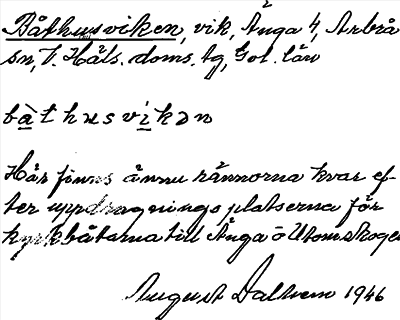 Båthusviken, vik, Änga 4, Arbrå
sn, V. Häls. doms. tg, Gvl. län
bàthusvikən
Här finns ännu rännorna kvar ef-
ter uppdragningsplatserna för
kyrkbåtarna till Änga o Utomskogen
August Dalhem 1946